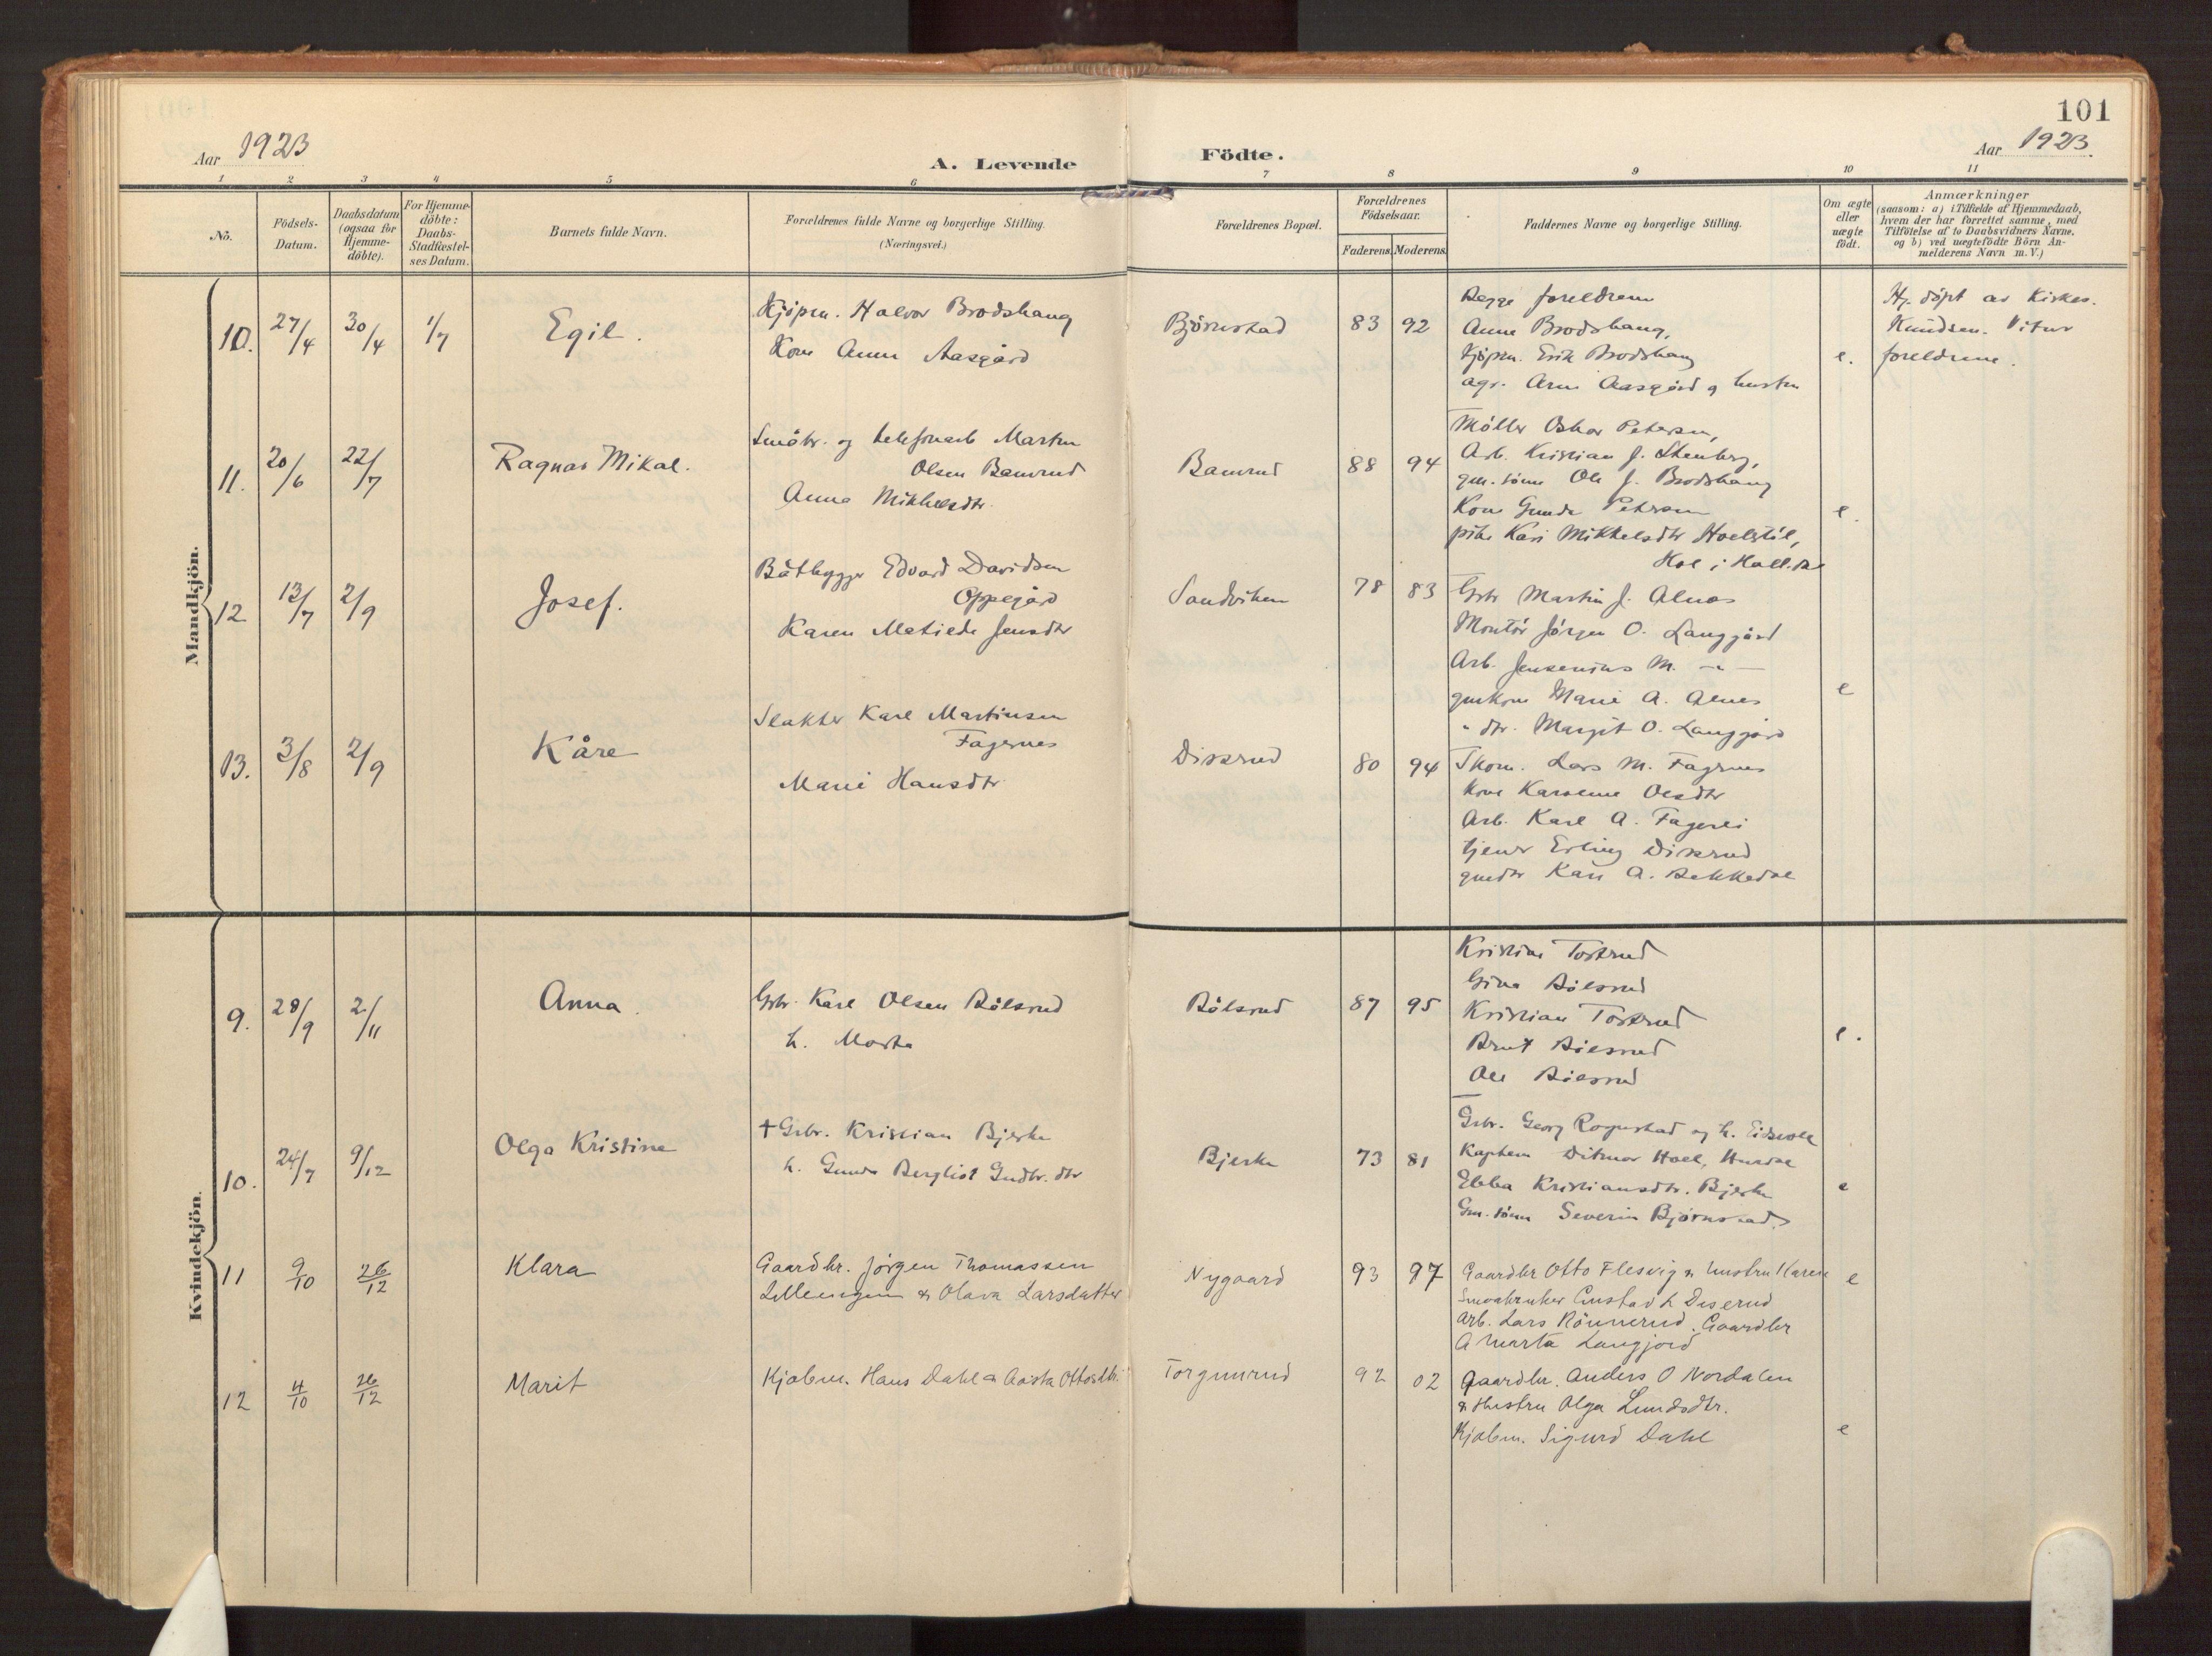 101
Aar 1923
A. Levende
Födte.
Aar 1923
1 2 3 4 5 6 7 8 9 10 11
Nö.
Födsels-
Datum.
Daabsdatum
(ogsaa for
Hjemme-
döbte).
For Hjemme-
döbte:
Daabs-
Stadfæstel-
ses Datum.
Barnets fulde Navn.
Forældrenes fulde Navne og borgerlige Stilling.
(Næringsvei.)
Forældrenes Bopæl.
Forældrenes
Födselsaar.
Faderens.
Moderens.
Faddernes Navne og borgerlige Stilling.
Om ægte
eller
uægte
födt.
Anmærkninger
(saasom: a) i Tilfælde af Hjemmedaab,
hvem der har forrettet samme, med
Tilföielse af to Daabsvidners Navne,
og b) ved uægtefödte Börn An-
melderens Navn m.V.)
Mandkjön.
10. 27/4 30/4 1/7 Egil.
Kjøpm. Halvor Brodshaug
Kone Anna Aasgård
Bjørnstad 83 92
Begge foreldrene
Anne Brodshaug,
Kjøpm. Erik Brodshaug
agr. Arne Aasgård og hustru
e.
Hj. døpt av Kirkes.
Knudsen. Vitner
foreldrene.
11. 20/6 22/7 Ragnar Mikal.
Småbr. og telefonarb Martin
Olsen Bamrud
Anna Mikkelsdtr.
Bamrud 88 94
Møller Oskar Petersen,
Arb. Kristian J. Stenberg,
gm. sønn Ole J. Brodshaug
Kone Gunda Petersen
pike Kari Mikkelsdtr Hoelstøl,
Hol i Halld.
e.
12 13/7 2/9 Josef.
Båtbygger Edvard Davidsen
Oppegård
Karen Matilde Jensdtr
Sandviken 78 83
Gbr Martin J. Alnes
Montør Jørgen O. Langgård
Arb. Jensenius M. —"—
gmkone Marie A. Alnes
" dtr. Margit O. Langgård
e
13. 3/8 2/9 Kåre
Slakter Karl Martinsen
Fagernes
Marie Hansdtr.
Disserud 80 94
Skom. Lars M. Fagernes
kone Karoline Olsdtr
Arb. Karl A. Fagerli
tjener Erling Disserud
gmdtr Kari A. Bekkedal
Kvindekjön.
9. 28/9 2/11 Anna.
Gbr. Karl Olsen Bølsrud
h. Marta
Bølsrud 87 95
Kristine Tostrud
Gina Bølsrud
Kristian Tostrud
Brut Bølsrud
Ole Bølsrud
e.
10. 24/7 9/12 Olga Kristine
+ Gbr. Kristian Bjerke
h. Gunda Bergliot Gudbr. dtr
Bjerke 73 81
Gbr. Georg Rognstad og h. Eidsvoll
Kaptein Ditmar Hoel, Hurdal
Ebba Kristiansdtr. Bjerke
Gm. sønn Severin Bjørnstad.
e
11 9/10 26/12 Klara
Gaardbr. Jørgen Thomassen
Lillemoen & Olava Larsdatter
Nygaard 93 97
Gaardbr Otto Flesvig & hustru Karen
Smaabruker Gustav L Diserud
Arb. Lars Rönnerud. Gaardbr
A Marta Langjord
e
12 4/10 26/12 Marit
Kjøbm. Hans Dahl & Aasta Ottosdtr.
Torgunrud 92 02
Gaardbr. Anders O Nordalen
& Hustru Olga Lundsdtr.
Kjøbm. Sigurd Dahl
e